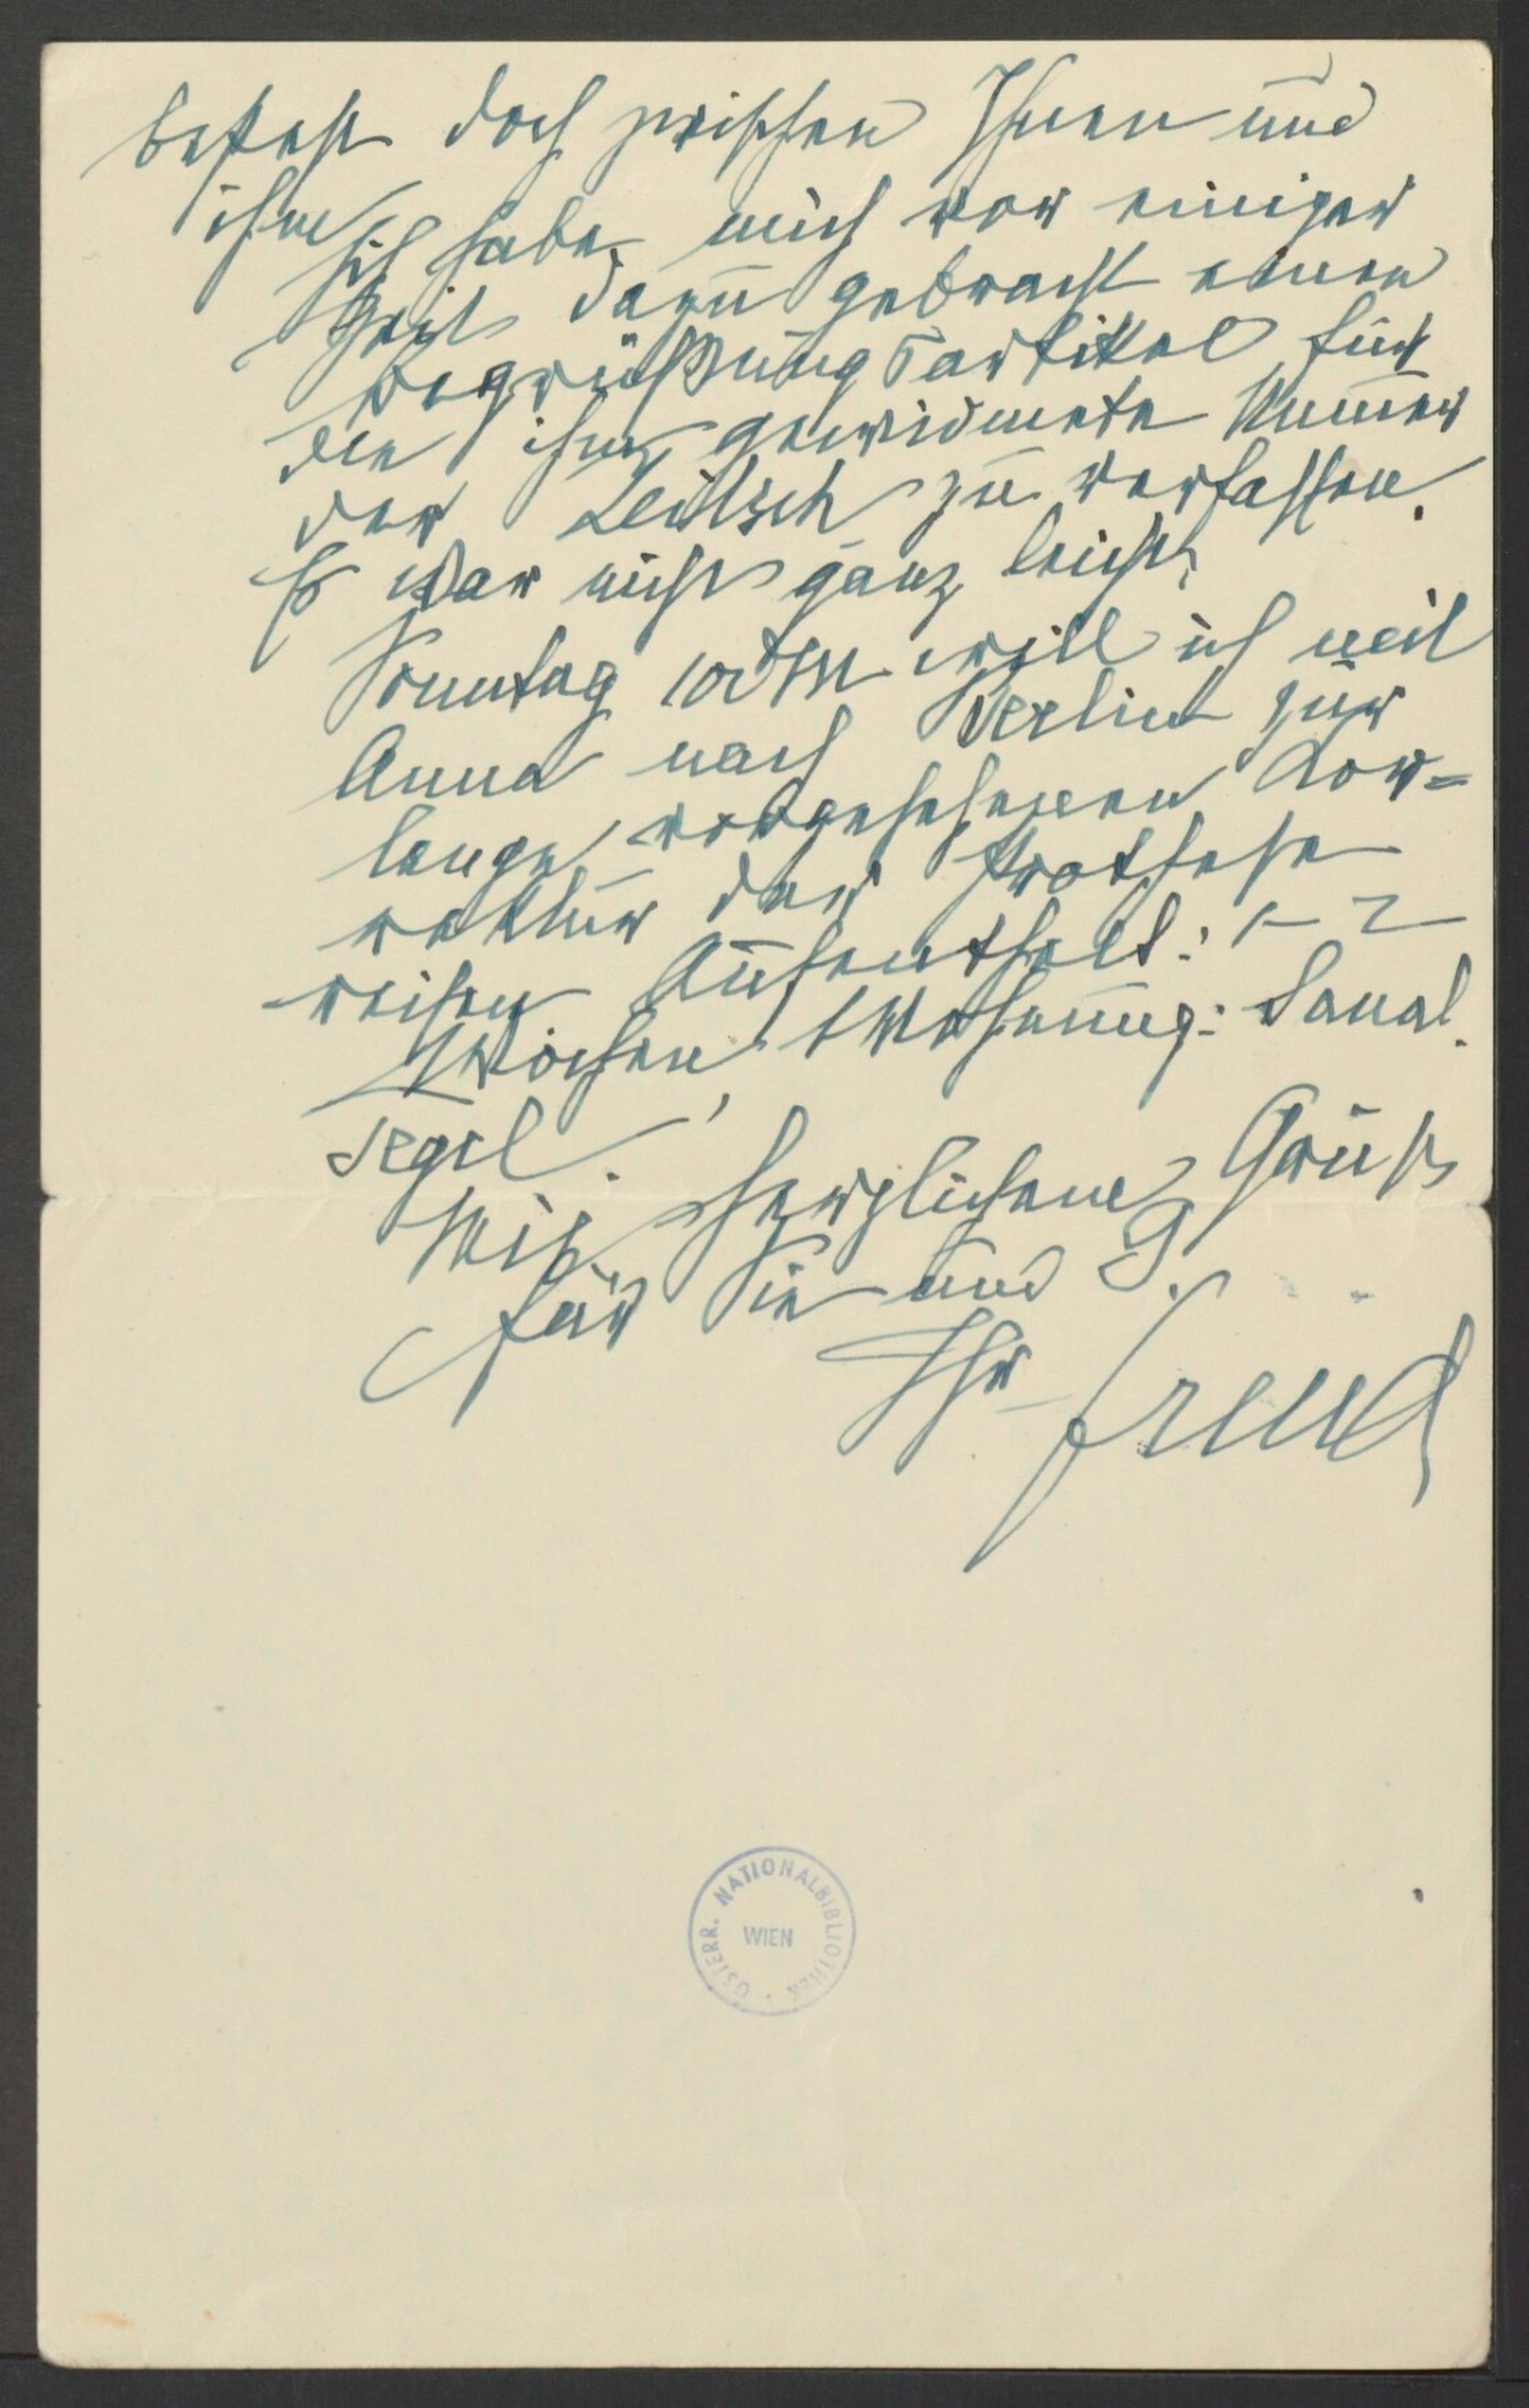 besteht doch zwischen Ihnen und
ihm. Ich habe mich vor einiger
Zeit dazu gebracht einen
Begrüßungsartikel für
die ihm gewidmete Nummer
der Zeitsch zu verfassen.
Es war nicht ganz leicht.
Sonntag 10 dM will ich mit
Anna nach Berlin zur
lange vorgesehenen Kor=
rektur der Prothese
reisen Aufenthalt: 1–2
Wochen, Wohnung: Sanat.
Tegel.
Mit herzlichem Gruß
für Sie und G.
Ihr Freud
ÖSTERR. NATIONALBIBLIOTHEK
WIEN